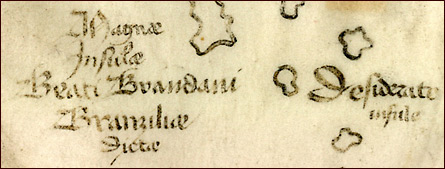 Magnæ
Insulæ
Beati Brandani
Branziliæ
Dictæ
Desiderate
insule